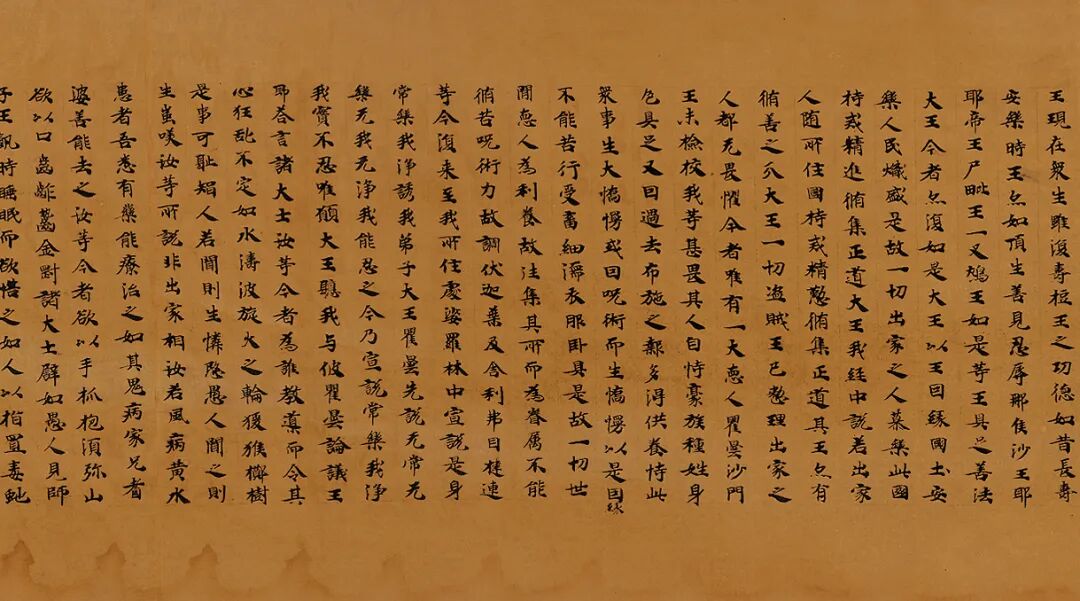 王現在衆生雖復壽短王之功德如昔長壽
安樂時王亦如頂生善見忍辱那侯沙王耶
耶帝王尸毗王一叉鳩王如是等王具足善法
大王今者亦復如是大王以王因緣國土安
樂人民熾盛是故一切出家之人慕樂此國
持戒精進脩集正道大王我經中說若出家
人随所住國持戒精懃脩集正道其王亦有
脩善之分大王一切盜賊王已整理出家之
人都无畏懼今者唯有一大惡人瞿曇沙門
王未檢校我等甚畏其人自恃豪族種姓身
色具足又因過去布施之報多得供養恃此
衆事生大憍慢或因呪術而生憍慢以是因緣
不能苦行受畜細濡衣服卧具是故一切世
間惡人為利養故往集其所而為眷属不能
脩苦呪術力故調伏迦葉及舍利弗目揵連
等今復来至我所住處娑羅林中宣說是身
常樂我淨誘我弟子大王瞿曇先說无常无
樂无我无淨我能忍之今乃宣說常樂我淨
我實不忍唯願大王聽我与彼瞿曇論議王
耶荅言諸大士汝等今者為誰教導而令其
心狂乱不定如水濤波旋火之輪猨猴擲樹
是事可耻智人若聞則生憐愍愚人聞之則
生蚩咲汝等所說非出家相汝若風病黄水
患者吾悉有藥能療治之如其鬼病家兄耆
婆善能去之汝等今者欲以手抓抱湏弥山
欲以口齒齚齧金剛諸大士譬如愚人見師
子王飢時睡眠而欲悟之如人以指置毒虵